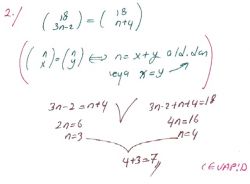 2./ (18 3n-2) = (18 n+4)
((n x) = (n y) ⟺ n=x+y old.dan
veya x=y)
3n-2=n+4 3n-2+n+4=18
2n=6 4n=16
n=3 n=4
4+3=7//
CEVAP:D